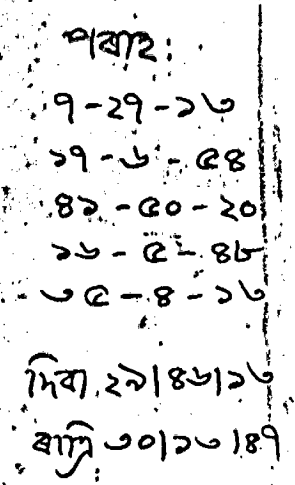 পৰাহ:
৭ - ২৭ - ১৩
১৭ - ৬ - ৫৪
৪১ - ৫০ - ২০
১৬ - ৫ - ৪৮
৩৫ - ৪ - ১৩
দিবা ২৯|৪৬|১৩
ৰাত্ৰি ৩০|১৩|৪৭